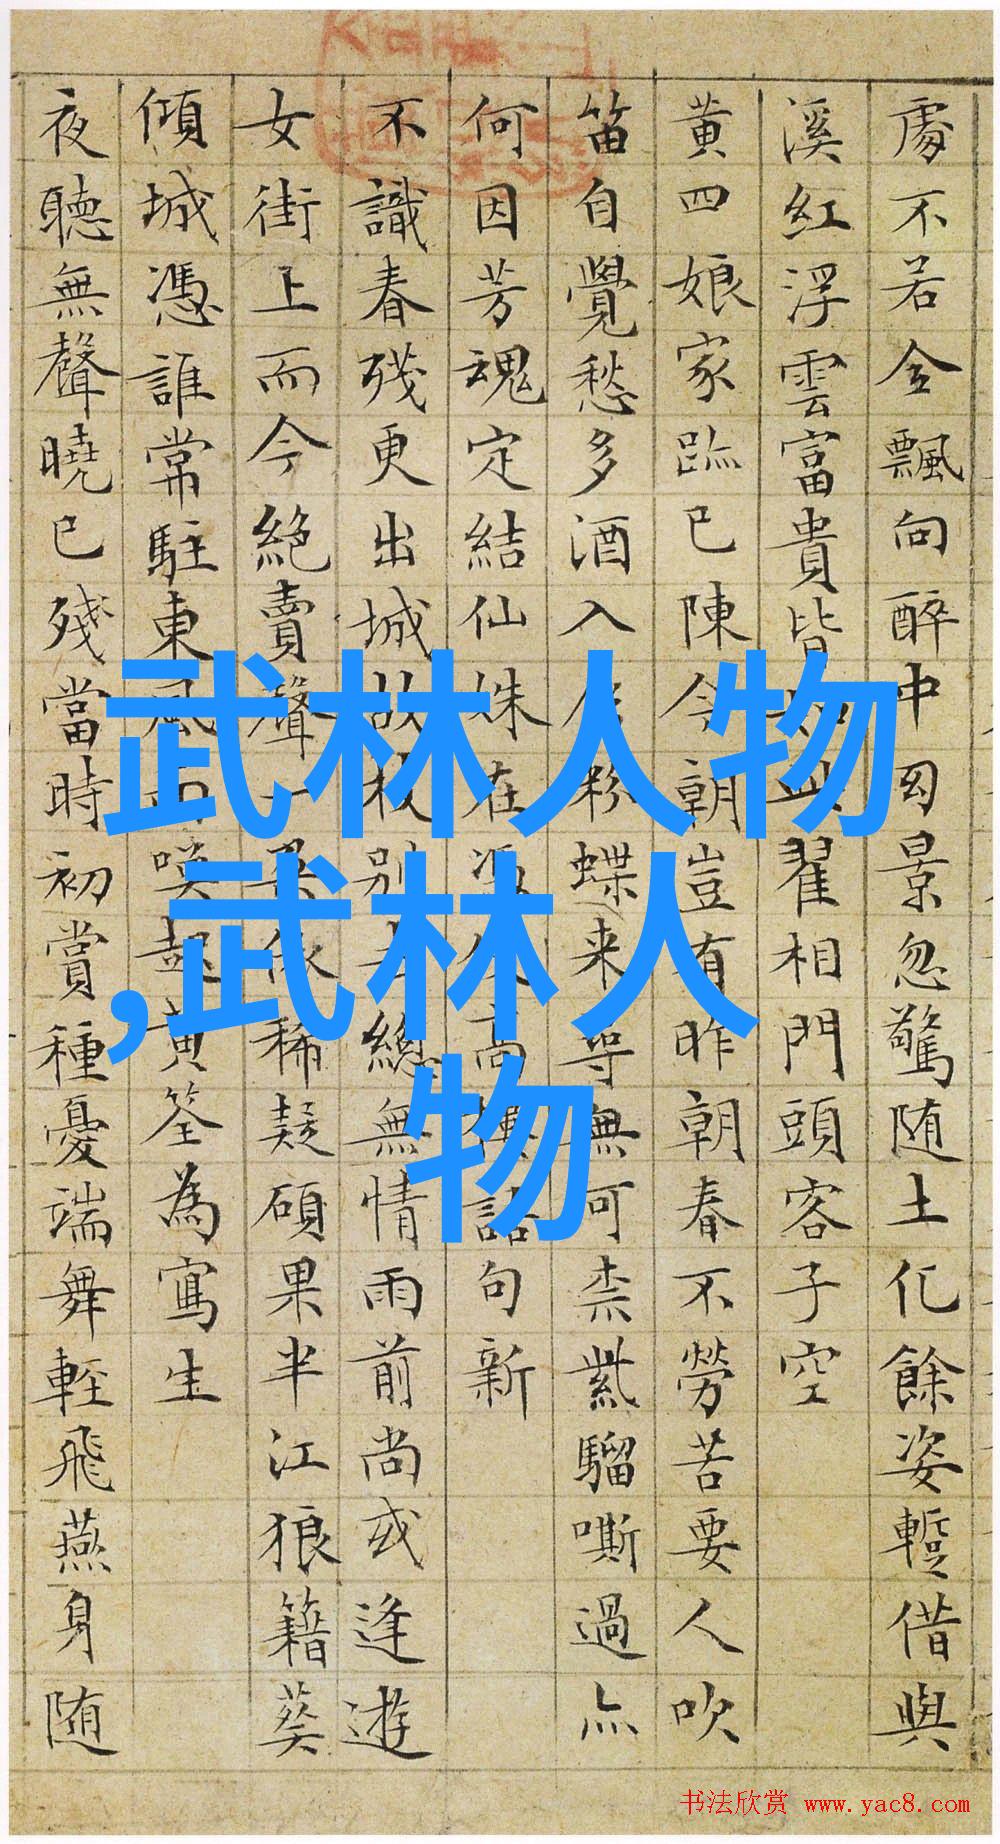 處不若金飄向醉中因景忽驚随土化餘姿蹔借與
溪紅浮雲富貴皆如此翟相門頭客子空
黄四娘家跡已陳今朝豈有昨朝春不勞苦要人吹
笛自覺愁多酒入唇粉蝶来尋無可柰紫騮嘶過亦
何因芳魂定結仙姝在添得高樓詰句新
不識春殘更出城故枝别去總無情雨前尚或逢遊
女街上而今絶賣聲一累依稀疑碩果半江狼籍葵
傾城憑誰常駐東風面喚起黄筌為寫生
夜聽無聲曉已殘當時初賞種憂端舞輕飛燕身随
武林人物
,武林人
物
书法欣赏 www.yac8.com